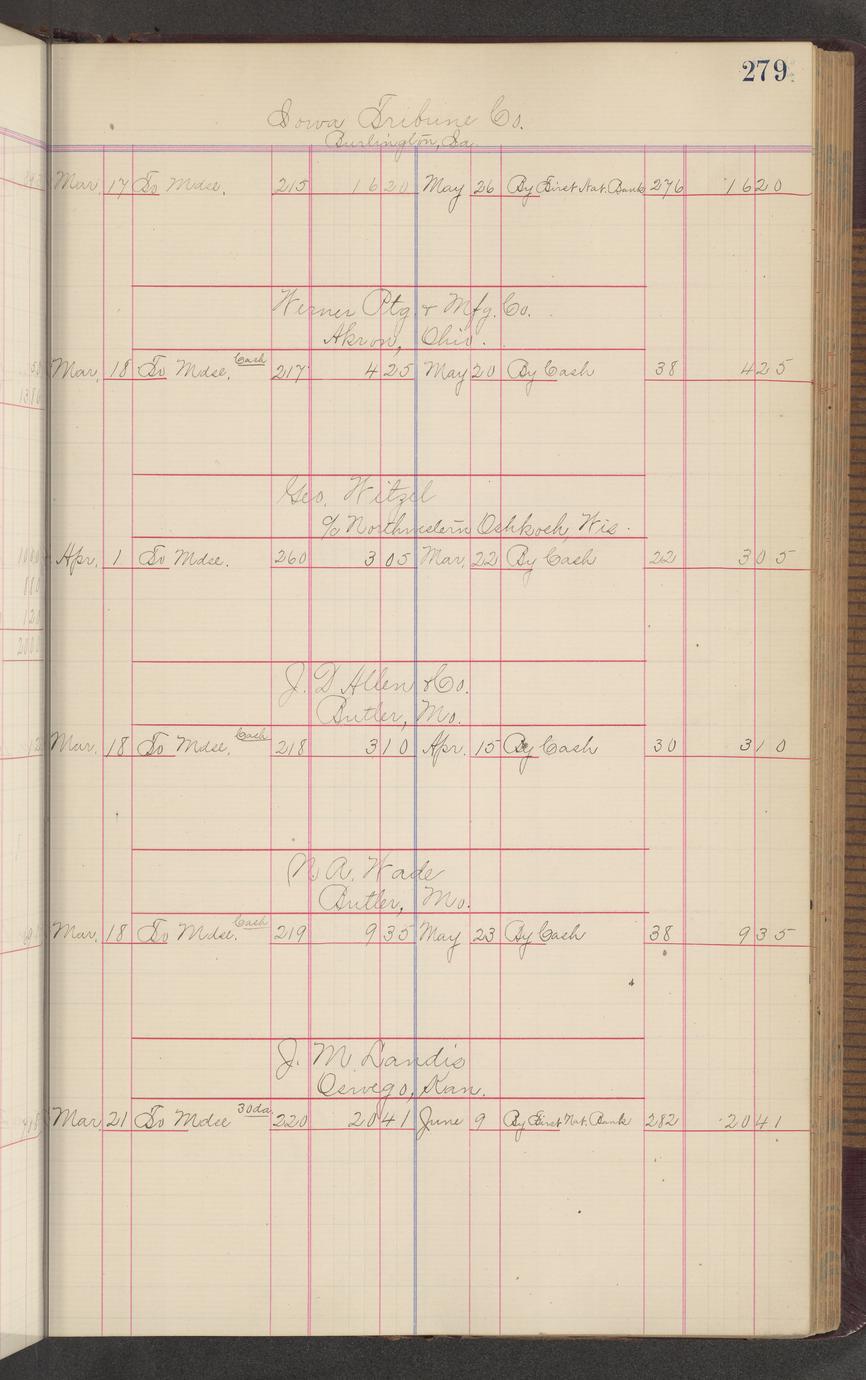 279
Iowa Tribune Co.
Burlington, Ia.
Mar. 17 To Mdse. 215 1620 May 26 By First Nat. Bank 276 1620
Werner Ptg. & Mfg. Co.
Akron, Ohio.
Mar. 18 To Mdse. Cash 217 425 May 20 By Cash 38 425
Geo. Witzel
c/o Northwestern Oshkosh, Wis.
Apr. 1 To Mdse. 260 305 Mar. 22 By Cash 22 305
J. D Allen & Co.
Butler, Mo.
Mar. 18 To Mdse. Cash 218 310 Apr. 15 By Cash 30 310
N A. Wade
Butler, Mo.
Mar. 18 To Mdse. Cash 219 935 May 23 By Cash 38 935
J. M Landis
Oswego, Kan.
Mar. 21 To Mdse 30 da. 220 2041 June 9 By First Nat. Bank 282 2041